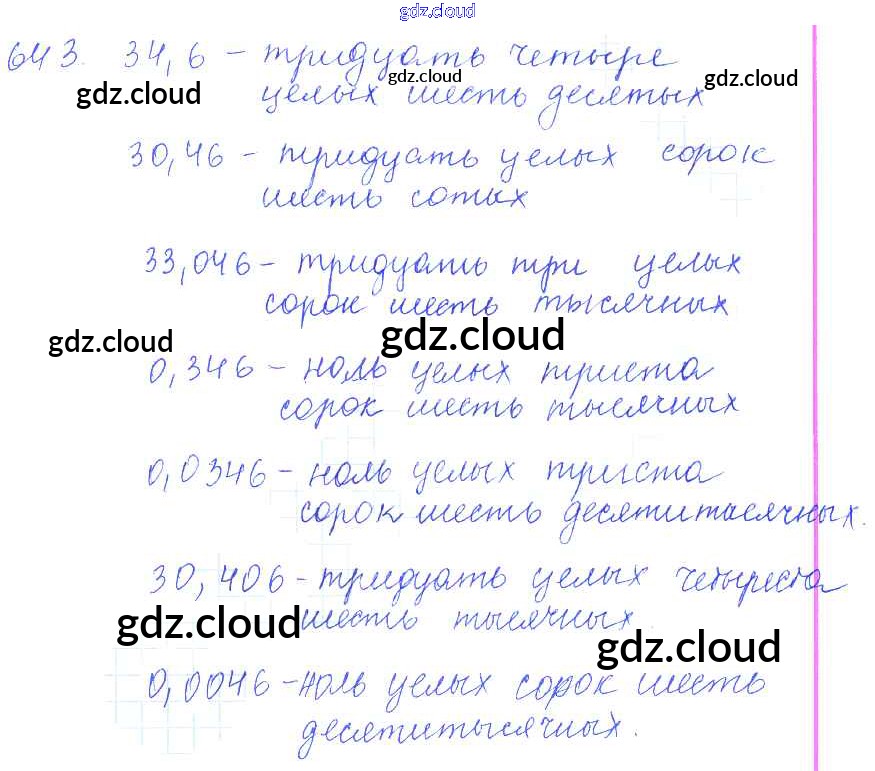 gdz.cloud
643. 34,6 – тридцать четыре
gdz.cloud gdz.cloud gdz.cloud
целых шесть десятых
30,46 – тридцать целых сорок
шесть сотых
33,046 – тридцать три целых
сорок шесть тысячных
gdz.cloud gdz.cloud
0,346 – ноль целых триста
сорок шесть тысячных
0,0346 – ноль целых триста
сорок шесть десятитысячных.
30,406 – тридцать целых четыреста
gdz.cloud шесть тысячных.
gdz.cloud
0,0046 – ноль целых сорок шесть
десятитысячных.